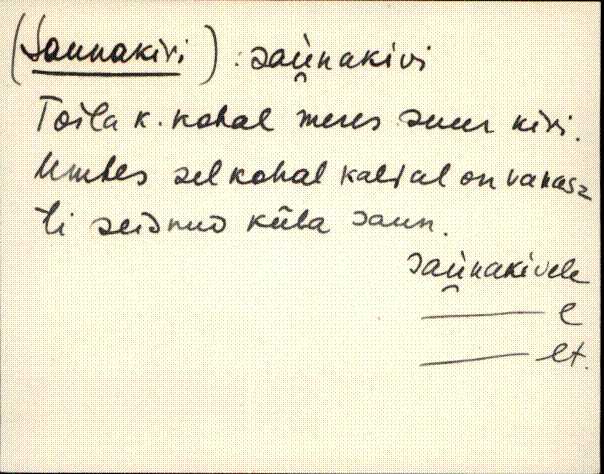 (Saunakivi) : sau̯nakivi
Toila k. kohal meres suur kivi.
Umbes sel kohal kaldal on vanas-
ti seisnud küla saun.
sau̯nakivele
——— e
——— lt.